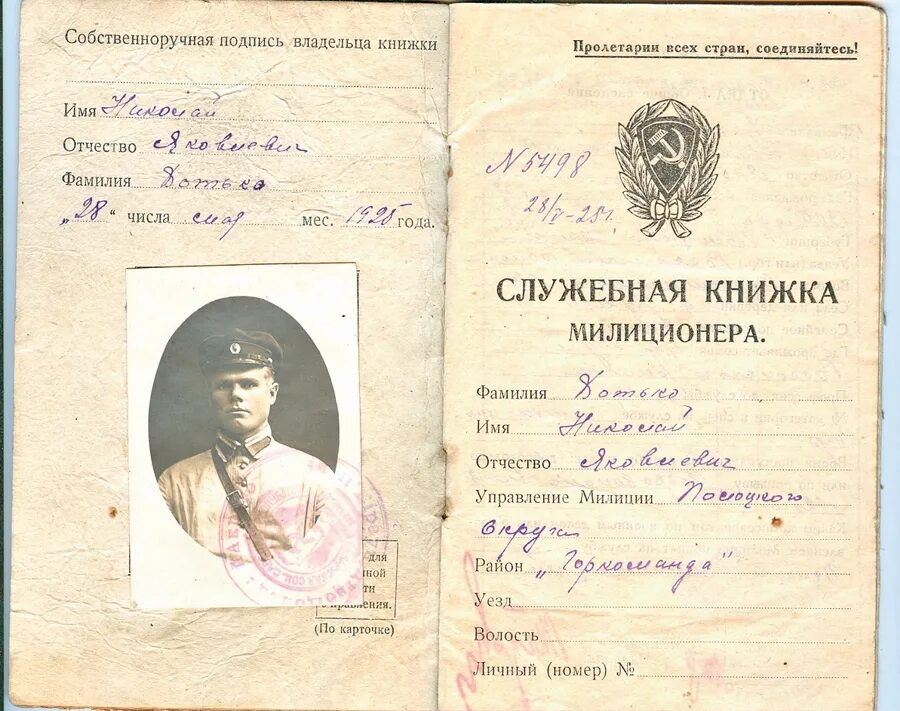 Собственноручная подпись владельца книжки
Имя Николай
Отчество Яковлевич
Фамилия Дотько
„28“ числа мая мес. 1925 года.
для
ной
ти
Управления.
(По карточке)
Пролетарии всех стран, соединяйтесь!
N 5498
28/V-25г.
СЛУЖЕБНАЯ КНИЖКА
МИЛИЦИОНЕРА.
Фамилия Дотько
Имя Николай
Отчество Яковлевич
Управление Милиции Полоцкого
округа
Район „Горкоманда“
Уезд
Волость
Личный (номер) №